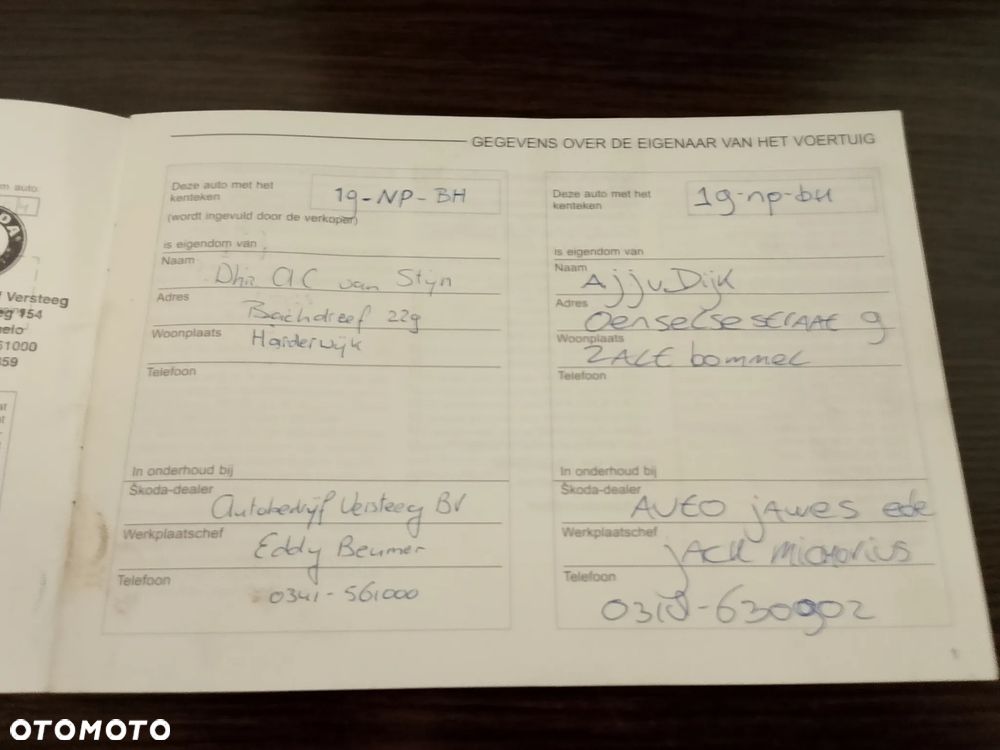 GEGEVENS OVER DE EIGENAAR VAN HET VOERTUIG
m auto
f Versteeg
eg 154
nelo
61000
859
Deze auto met het
kenteken
19-NP-BH
(wordt ingevuld door de verkoper)
is eigendom van
Naam
Dhr. A.C van Stijn
Adres
Bachdreef 22g
Woonplaats
Harderwijk
Telefoon
In onderhoud bij
Škoda-dealer
Autobedrijf Versteeg BV
Werkplaatschef
Eddy Beumer
Telefoon
0341-561000
Deze auto met het
kenteken
19-np-bH
is eigendom van
Naam
A j j v. Dijk
Adres
Oenselsestraat 9
Woonplaats
ZALt bommel
Telefoon
In onderhoud bij
Škoda-dealer
AUtO jAwes ede
Werkplaatschef
jACK
Telefoon
0318-630902
1
OTOMOTO